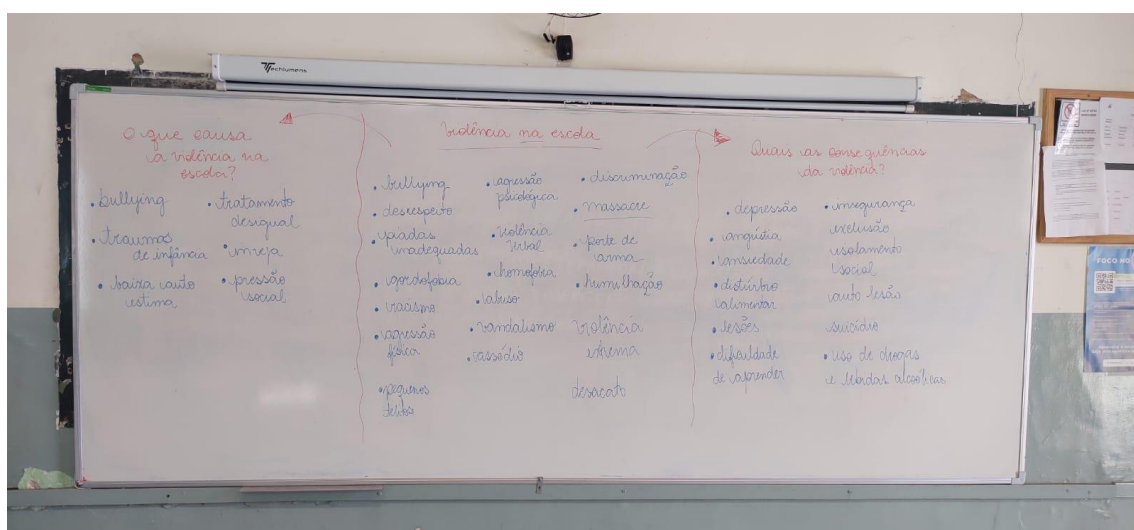 Techlumens
O que causa
a violência na
escola?
• bullying
• traumas
de infância
• baixa auto
estima
• tratamento
desigual
• inveja
• pressão
social
Violência na escola
• bullying
• desrespeito
• piadas
inadequadas
• gordofobia
• racismo
• agressão
física
• pequenos
• agressão
psicológica
• violência
verbal
• homofobia
• abuso
• vandalismo
• assédio
• discriminação
• massacre
• porte de
arma
• humilhação
violência
extrema
desacato
Quais as consequências
da violência?
• depressão
• angústia
• ansiedade
• distúrbio
alimentar
• lesões
• dificuldade
de aprender
• insegurança
exclusão
isolamento
social
auto lesão
suicídio
• uso de drogas
e bebidas alcoólicas
FOCO NO